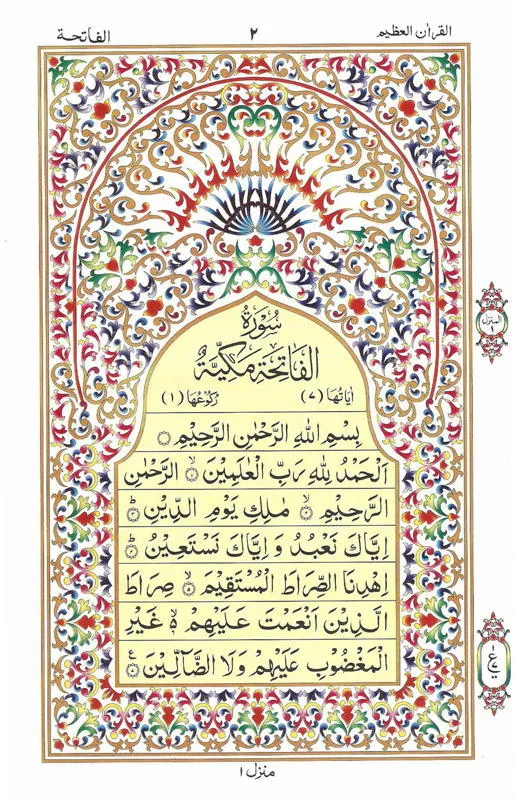 القراٰن العظيم ٢ الفاتحة
سُوْرَةُ
الفَاتِحَةِ مَكِّيَّةٌ
اٰيَاتُهَا (٧) رُكُوْعُهَا (١)
بِسْمِ اللّٰهِ الرَّحْمٰنِ الرَّحِيْمِ
اَلْحَمْدُ لِلّٰهِ رَبِّ الْعٰلَمِيْنَ ۙ﴿١﴾ الرَّحْمٰنِ
الرَّحِيْمِ ۙ﴿٢﴾ مٰلِكِ يَوْمِ الدِّيْنِ ؕ﴿٣﴾
اِيَّاكَ نَعْبُدُ وَ اِيَّاكَ نَسْتَعِيْنُ ؕ﴿٤﴾
اِهْدِنَا الصِّرَاطَ الْمُسْتَقِيْمَ ۙ﴿٥﴾ صِرَاطَ
الَّذِيْنَ اَنْعَمْتَ عَلَيْهِمْ ۙ۬ۦ غَيْرِ
الْمَغْضُوْبِ عَلَيْهِمْ وَلَا الضَّآلِّيْنَ
المنزل
منزل ١